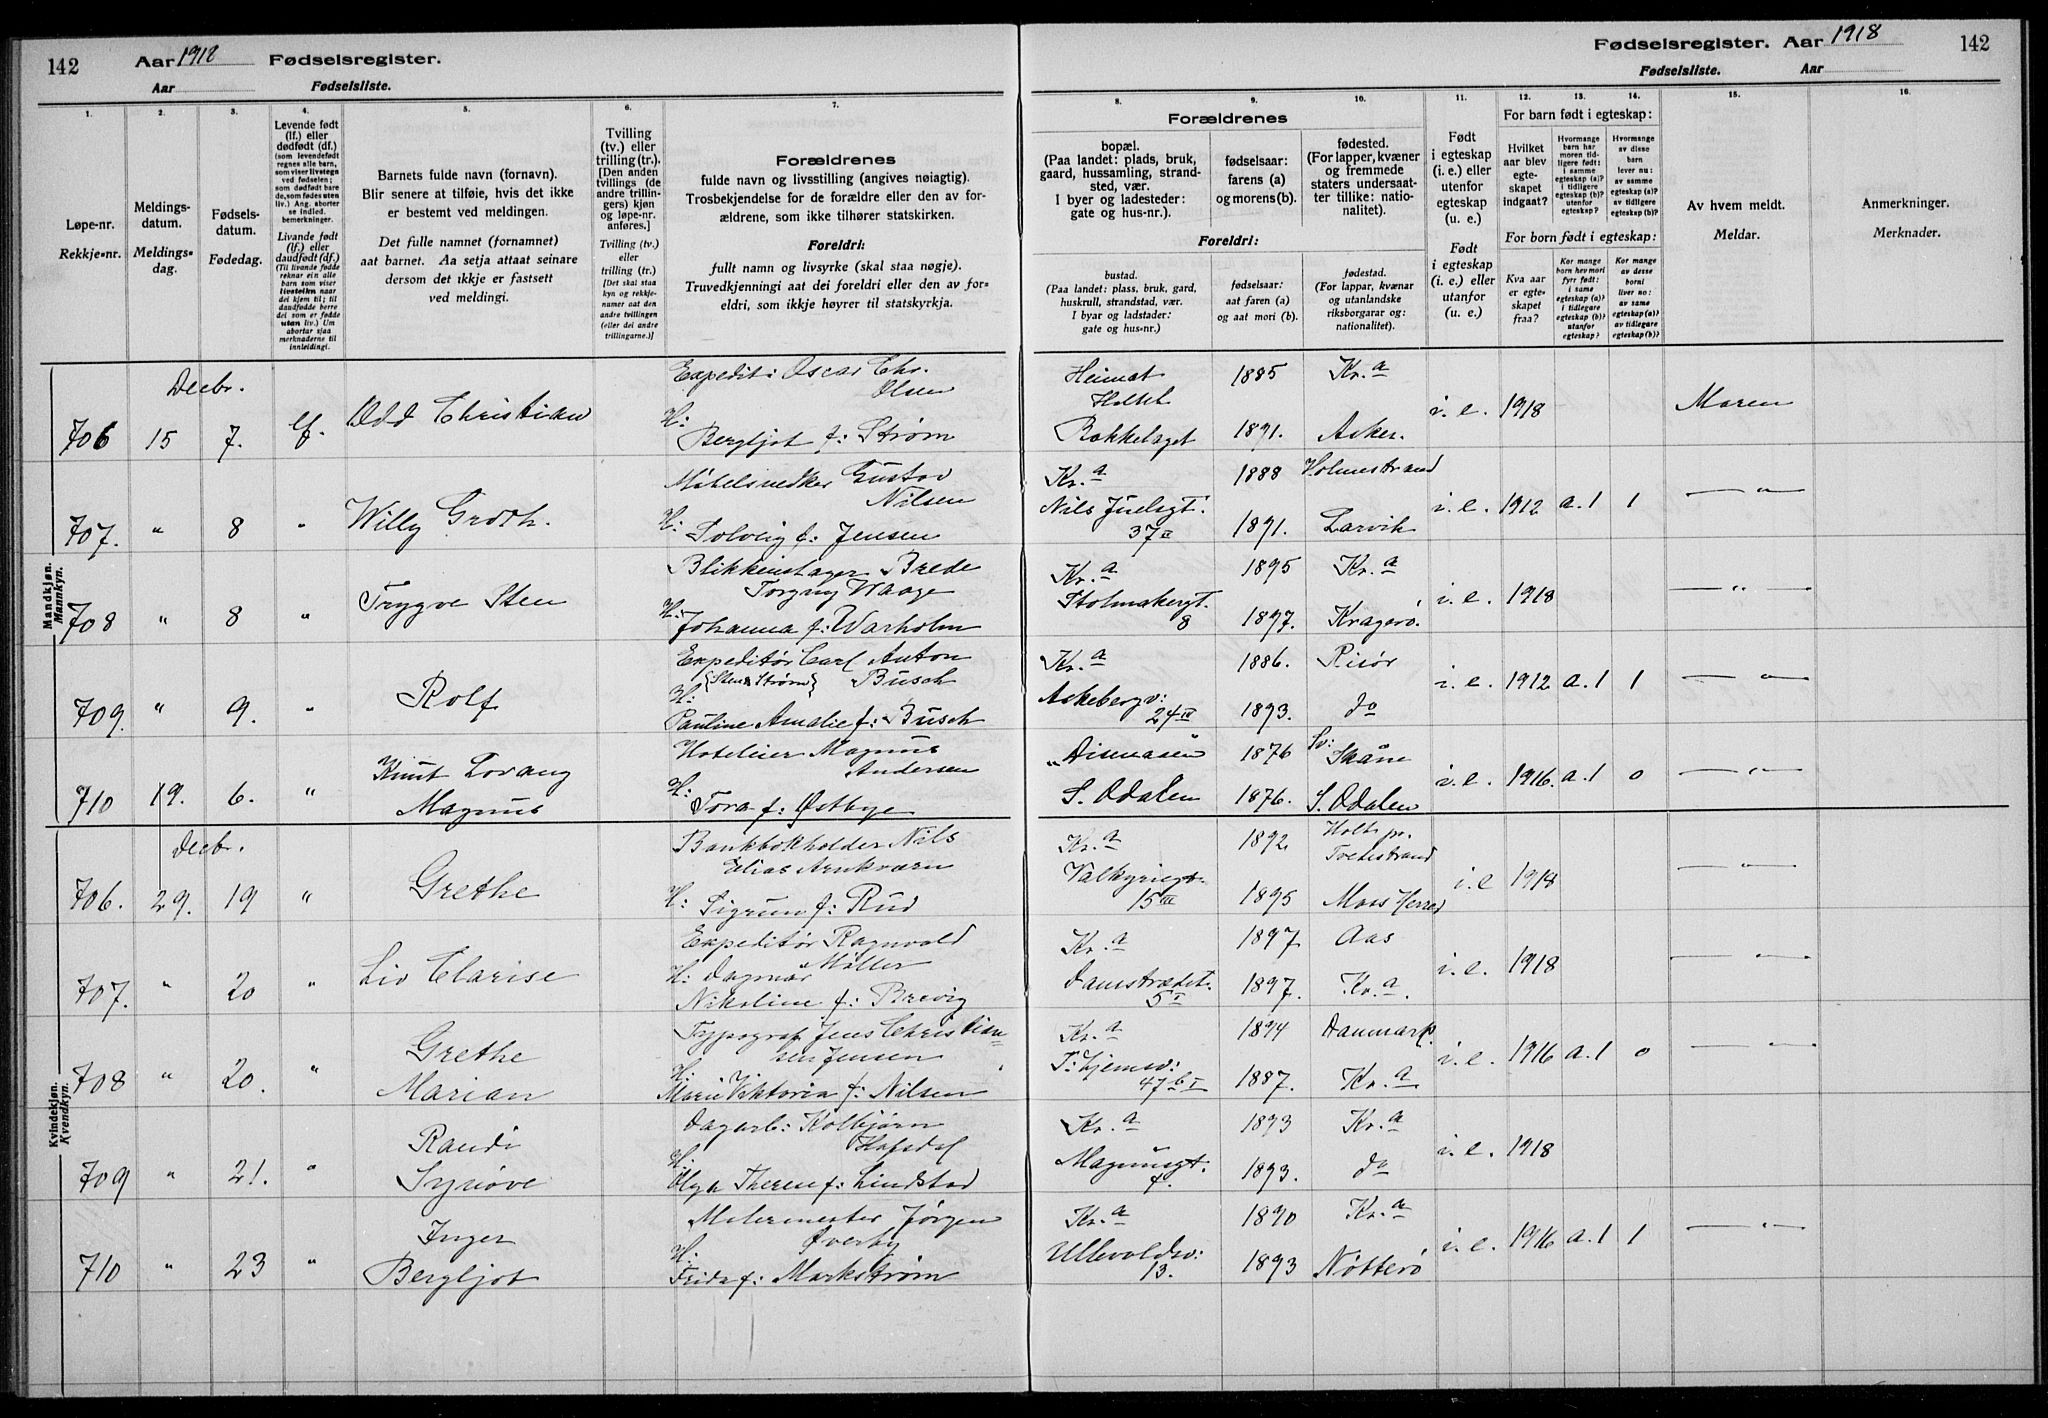 142 Aar 1918 Fødselsregister.
Aar Fødselsliste.
Fødselsregister. Aar 1918 142
Fødselsliste. Aar
1. 2. 3. 4. 5. 6. 7.
8. 9. 10. 11. 12. 13. 14. 15. 16.
Løpe-nr.
Rekkje-nr.
Meldings-
datum.
Meldings-
dag.
Fødsels-
datum.
Fødedag.
Levende født
(lf.) eller
dødfødt (df.)
(som levendefødt
regnes alle barn,
som viser livstegn
ved fødselen;
som dødfødt bare
de, som fødes uten
liv.) Ang. aborter
se indled.
bemerkninger.
Livande født
(lf.) eller
daudfødt (df.)
(Til livande fødde
reknar ein alle
barn som viser
livsteikn naar
dei kjem til; til
daudfødde berre
dei som er fødde
utan liv.) Um
abortar sjaa
merknaderne til
innleidingi.
Barnets fulde navn (fornavn).
Blir senere at tilføie, hvis det ikke
er bestemt ved meldingen.
Det fulle namnet (fornamnet)
aat barnet. Aa setja attaat seinare
dersom det ikkje er fastsett
ved meldingi.
Tvilling
(tv.) eller
trilling (tr.).
[Den anden
tvillings (de
andre trillin-
gers) kjøn
og løpe-nr.
anføres.]
Tvilling (tv.)
eller
trilling (tr.)
[Det skal staa
kyn og rekkje-
numer aat den
andre tvillingen
(eller dei andre
trillingarne.)]
Forældrenes
fulde navn og livsstilling (angives nøiagtig).
Trosbekjendelse for de forældre eller den av for-
ældrene, som ikke tilhører statskirken.
Foreldri:
fullt namn og livsyrke (skal staa nøgje).
Truvedkjenningi aat dei foreldri eller den av for-
eldri, som ikkje høyrer til statskyrkja.
Forældrenes
bopæl.
(Paa landet: plads, bruk,
gaard, hussamling, strand-
sted, vær.
I byer og ladesteder:
gate og hus-nr.).
fødselsaar:
farens (a)
og morens (b).
fødested.
(For lapper, kvæner
og fremmede
staters undersaat-
ter tillike: natio-
nalitet).
Foreldri:
bustad.
(Paa landet: plass, bruk, gard,
huskrull, strandstad, vær.
I byar og ladstader:
gate og hus-nr.)
fødselsaar:
aat faren (a)
og aat mori (b).
fødestad.
(For lappar, kvænar
og utanlandske
riksborgarar og:
nationalitet).
Født
i egteskap
(i. e.) eller
utenfor
egteskap
(u. e.)
Født
i egteskap
(i. e.) eller
utanfor
(u. e.)
For barn født i egteskap:
Hvilket
aar blev
egte-
skapet
indgaat?
Hvormange
barn har
moren tid-
ligere født:
i samme
egteskap (a)?
i tidligere
egteskap (b)?
utenfor
egteskap?
Hvormange
av disse
barn
lever nu:
av samme
egteskap (a)?
av tidligere
egteskap (b)?
For born født i egteskap:
Kva aar
er egte-
skapet
fraa?
Kor mange
born hev mori
fyrr født:
i same
egteskap (a)?
i tidlegare
egteskap (b)?
utanfor
egteskap?
Kor mange
av desse
borni
liver no:
av same
egteskap (a)?
av tidlegare
egteskap (b)?
Av hvem meldt.
Meldar.
Anmerkninger.
Merknader.
Mandkjøn.
Mannkyn.
Decbr. Expedit: Oscar Chr. Heimat 1885 Kr.a
Olsen Holtet
706 15 7. lf. Odd Christian H: i. e. 1918 Moren
Bergljot f: Strøm Bækkelaget 1891. Asker.
Møbelsnedker Gustav Kr.a 1888 Holmestrand
Nilsen Nils Juelsgt.
707. " 8 " Willy Groth. H: i. e. 1912 a.1 1 — " —
Solveig f: Jensen 37 II 1891. Larvik
Blikkenslager Brede Kr.a 1895 Kr.a
Torgny Waage Stolmakergt.
708 " 8 " Trygve Sten H: i. e. 1918 — " —
Johanna f: Warholm 8 1897. Kragerö.
Expeditör Carl Anton Kr.a 1886. Risör
{Sten & Strøm} Busch
709. " 9. " Rolf H: Akebergv: i. e. 1912 a.1 1 — " —
Pauline Amalie f: Busch 24 IV 1893. do
Hoteleier Magnus „Disenaaen 1876 Sv: Skåne
Andersen
710 19. 6. " Knut Lorang H: i. e. 1916 a.1 0 — " —
Magnus Tora f: Østbye S. Odalen 1876. S. Odalen
Kvindekjøn.
Kvendkyn.
Decbr. Bankbokholder Nils Kr.a 1892. Holt pr.
Elias Arnkværn Valkyriegt. Tvedestrand
706. 29. 19 " Grethe H: Sigrun f: Rud 15 III 1895 Moss Herred i. e 1918 — " —
Expeditör Ragnvald Kr.a 1897 Aas
Møller
707. " 20 " Liv Clarise H: Dagmar Damstrædet. i. e. 1918 — " —
Nikoline f: Brevig 5 I 1897. Kr.a.
Typograf Jens Christian- Kr.a 1894 Danmark.
sen Jensen
708 " 20. " Grethe H: T: hjemsv: i. e. 1916 a.1 0 — " —
Marian Marie Viktoria f: Nilsen 47 b I 1887. Kr.a
Dagarb: Kolbjørn Kr.a 1893 Kr.a
709 " 21. " Randi H: Magnusgt. i. e. 1918
Synöve Olga f: Lindstad 1893. do
Malermester Jørgen Kr.a 1890 Kr.a
Øverby
710 " 23 " Inger H: Ullevoldsv: i. e. 1916 a.1 1 — " —
Bergljot Frida f: Markstrøm 13. 1893 Nötterö